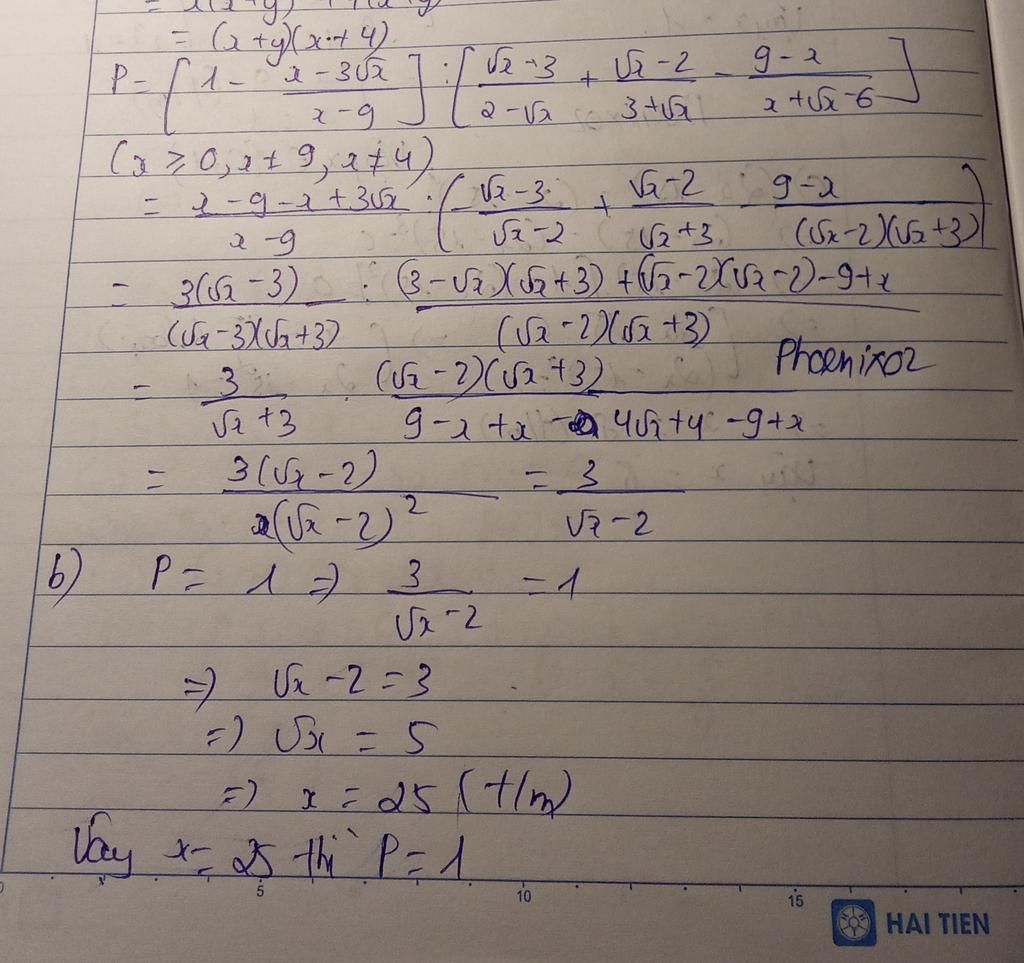 = (x+y)(x+4)
P = [1 - (x-3√x)/(x-9)] : [(√x-3)/(2-√x) + (√x-2)/(3+√x) - (9-x)/(x+√x-6)]
(x ≥ 0, x ≠ 9, x ≠ 4)
= (x-9-x+3√x)/(x-9) : (-(√x-3)/(√x-2) + (√x-2)/(√x+3) - (9-x)/((√x-2)(√x+3)))
= 3(√x-3)/((√x-3)(√x+3)) : ((3-√x)(√x+3)+(√x-2)(√x-2)-9+x)/((√x-2)(√x+3))
Phoenixoz
= 3/(√x+3) . ((√x-2)(√x+3))/(9-x+x-4√x+4-9+x)
= 3(√x-2)/(√x-2)² = 3/(√x-2)
b) P = 1 => 3/(√x-2) = 1
=> √x-2 = 3
=> √x = 5
=> x = 25 (t/m)
Vậy x = 25 thì P = 1
5 10 15
HAI TIEN